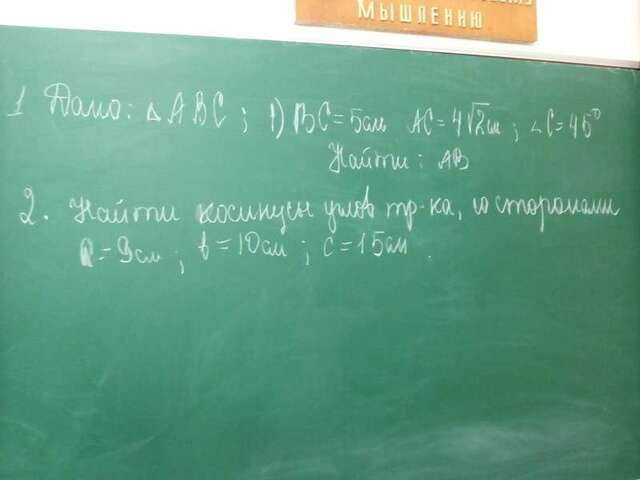 МЫШЛЕНИЮ
1 Дано: △ABC; 1) BC=5см AC=4√2см; ∠C=45°
Найти: AB
2. Найти косинусы углов тр-ка, со сторонами
a=9см; b=10см; c=15см.